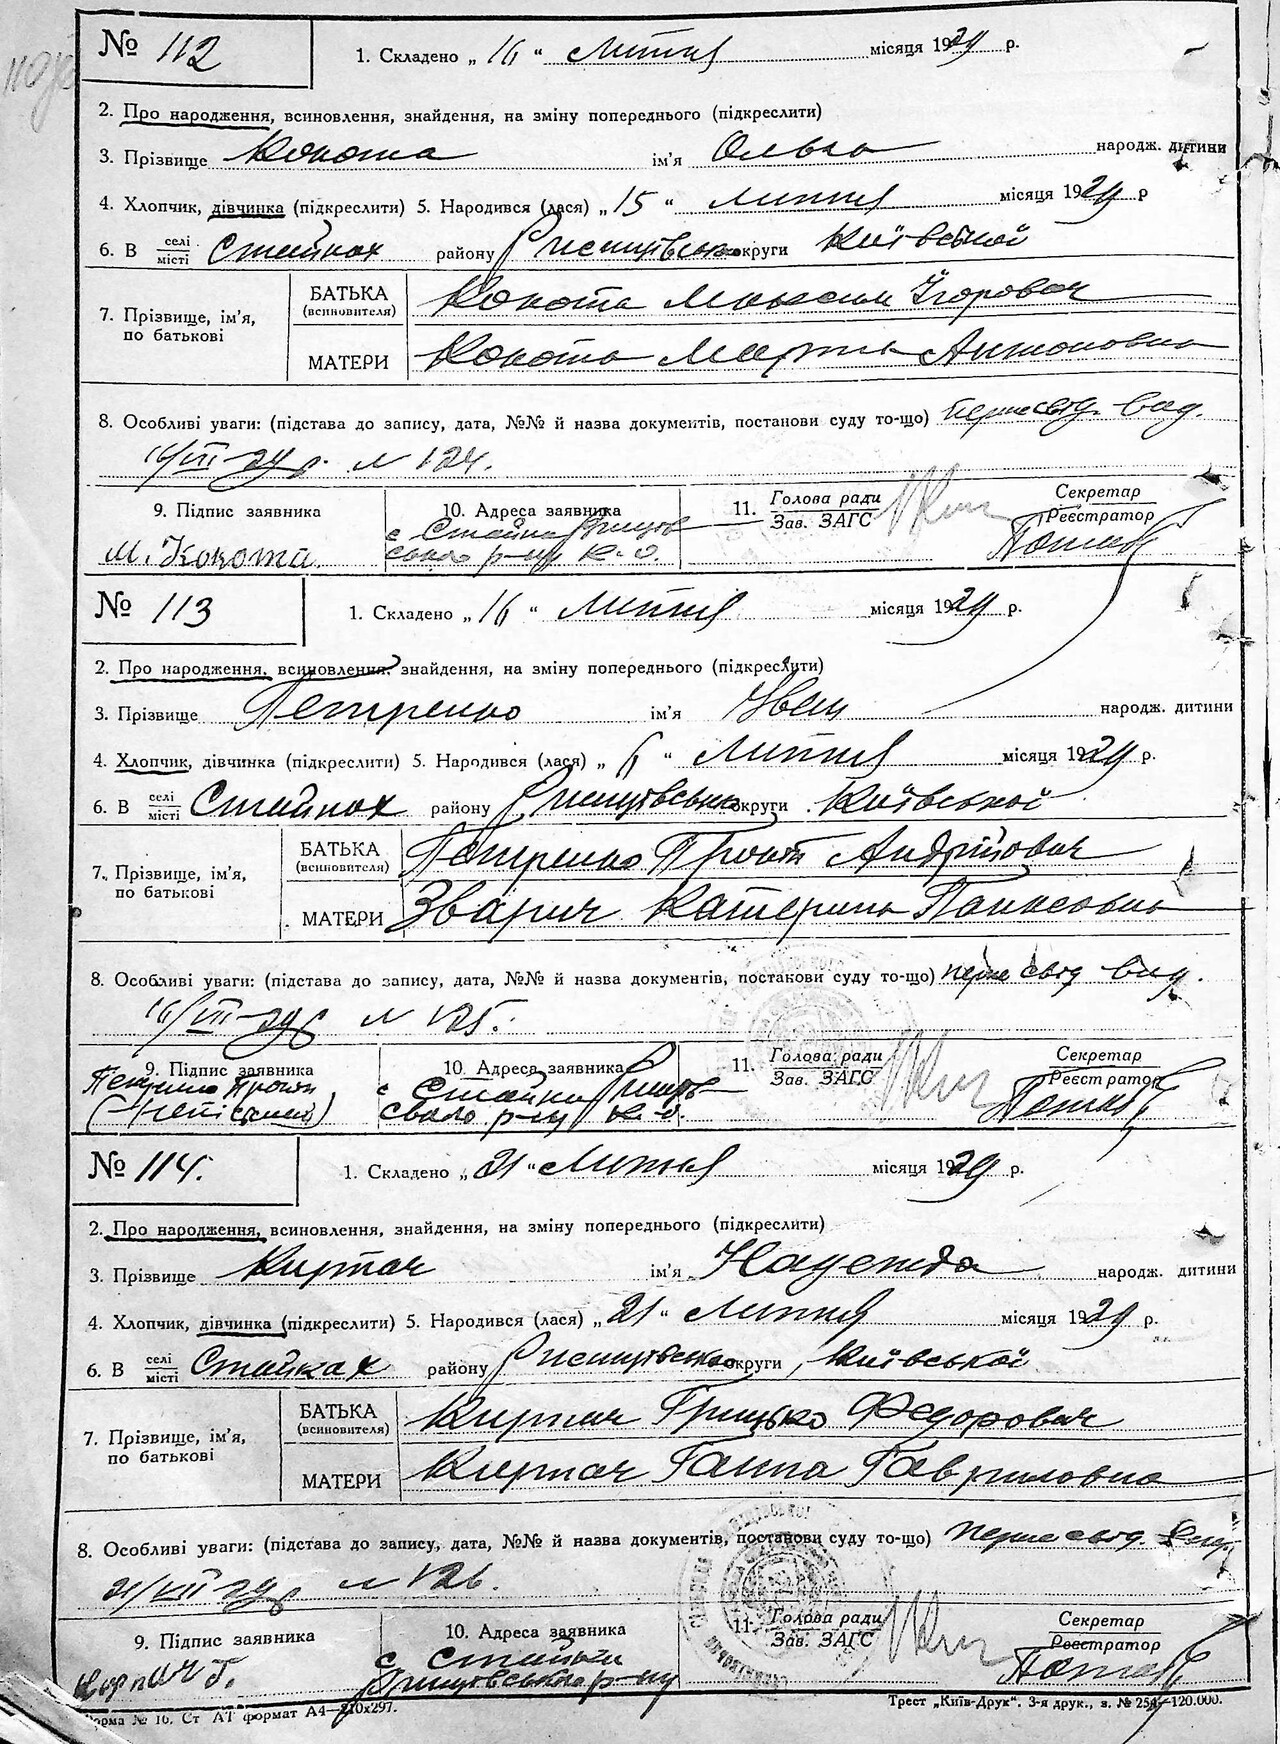 № 112 1. Складено „ 16 “ Липня місяця 1929 р.
2. Про народження, всиновлення, знайдення, на зміну попереднього (підкреслити)
3. Прізвище Кокота ім'я Ольга народж. дитини
4. Хлопчик, дівчинка (підкреслити) 5. Народився (лася) „ 15 “ Липня місяця 1929 р
6. В селі місті Стайках району Ржищівсько округи Київської
7. Прізвище, ім'я, по батькові
БАТЬКА (всиновителя) Кокота Максим Ігорович
МАТЕРИ Кокота Марта Антоновна
8. Особливі уваги: (підстава до запису, дата, №№ й назва документів, постанови суду то-що) перше свід. вид.
16/VII-29 р. N 124.
9. Підпис заявника 10. Адреса заявника 11. Голова ради Зав. ЗАГС Секретар Реєстратор
М. Кокота с Стайки Ржищівського р-ну К. о.
№ 113 1. Складено „ 16 “ Липня місяця 1929 р.
2. Про народження, всиновлення, знайдення, на зміну попереднього (підкреслити)
3. Прізвище Петренко ім'я Іван народж. дитини
4. Хлопчик, дівчинка (підкреслити) 5. Народився (лася) „ 6 “ Липня місяця 1929 р.
6. В селі місті Стайках району Ржищівсько округи Київської
7. Прізвище, ім'я, по батькові
БАТЬКА (всиновителя) Петренко Прокіп Андрійович
МАТЕРИ Зварич Катерина Панасовна
8. Особливі уваги: (підстава до запису, дата, №№ й назва документів, постанови суду то-що) перше свід вид.
16/VII-29 р N 125.
9. Підпис заявника 10. Адреса заявника 11. Голова ради Зав. ЗАГС Секретар Реєстратор
Петренко Прокіп с Стайки Ржищівського р-ну К. о.
№ 114. 1. Складено „ 21 “ Липня місяця 1929 р.
2. Про народження, всиновлення, знайдення, на зміну попереднього (підкреслити)
3. Прізвище Кирпач ім'я Надежда народж. дитини
4. Хлопчик, дівчинка (підкреслити) 5. Народився (лася) „ 21 “ Липня місяця 1929 р.
6. В селі місті Стайках району Ржищівсько округи Київської
7. Прізвище, ім'я, по батькові
БАТЬКА (всиновителя) Кирпач Грицько Федорович
МАТЕРИ Кирпач Ганна Гавриловна
8. Особливі уваги: (підстава до запису, дата, №№ й назва документів, постанови суду то-що) перше свід. вид.
21/VII 29 р N 126.
9. Підпис заявника 10. Адреса заявника 11. Голова ради Зав. ЗАГС Секретар Реєстратор
Кирпач Г. с Стайки Ржищівського р-ну
Форма № 16. Ст АТ формат А4—210x297. Трест „Київ-Друк“. 3-я друк., з. № 254—120.000.